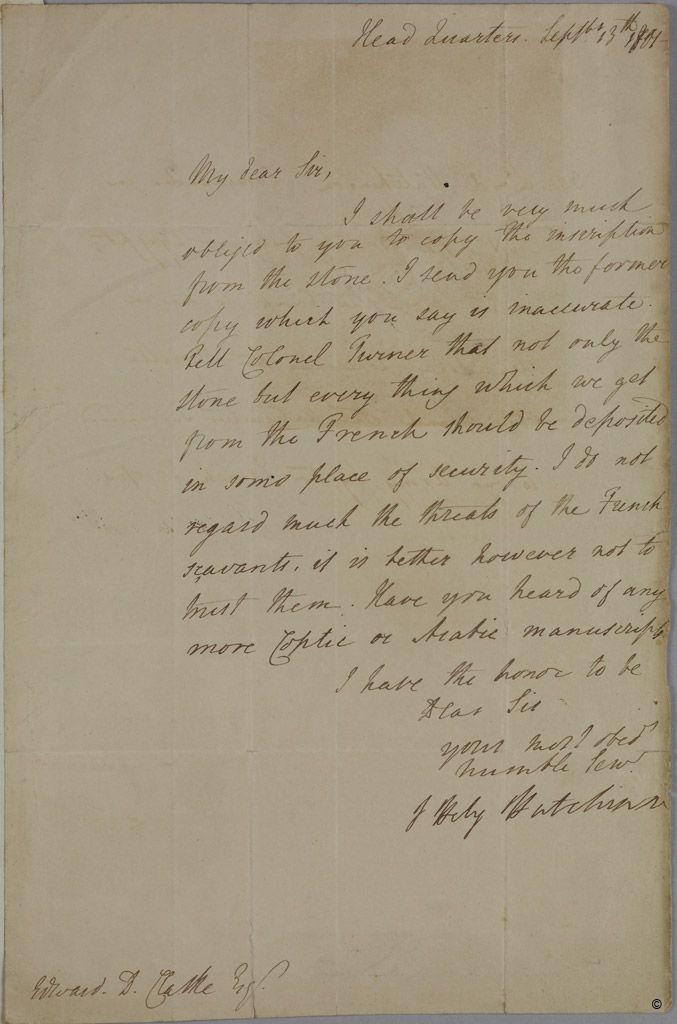 Head Quarters. Septbr 13th 1801
My dear Sir,
I shall be very much
obliged to you to copy the inscription
from the stone. I send you the former
copy which you say is inaccurate.
Tell Colonel Turner that not only the
stone but every thing which we get
from the French should be deposited
in some place of security. I do not
regard much the threats of the French
sçavants, it is better however not to
trust them. Have you heard of any
more Coptic or Arabic manuscripts
I have the honor to be
Dear Sir
your most obedt
humble Servt
J Hely Hutchinson
Edward. D. Clarke Esqr.
©